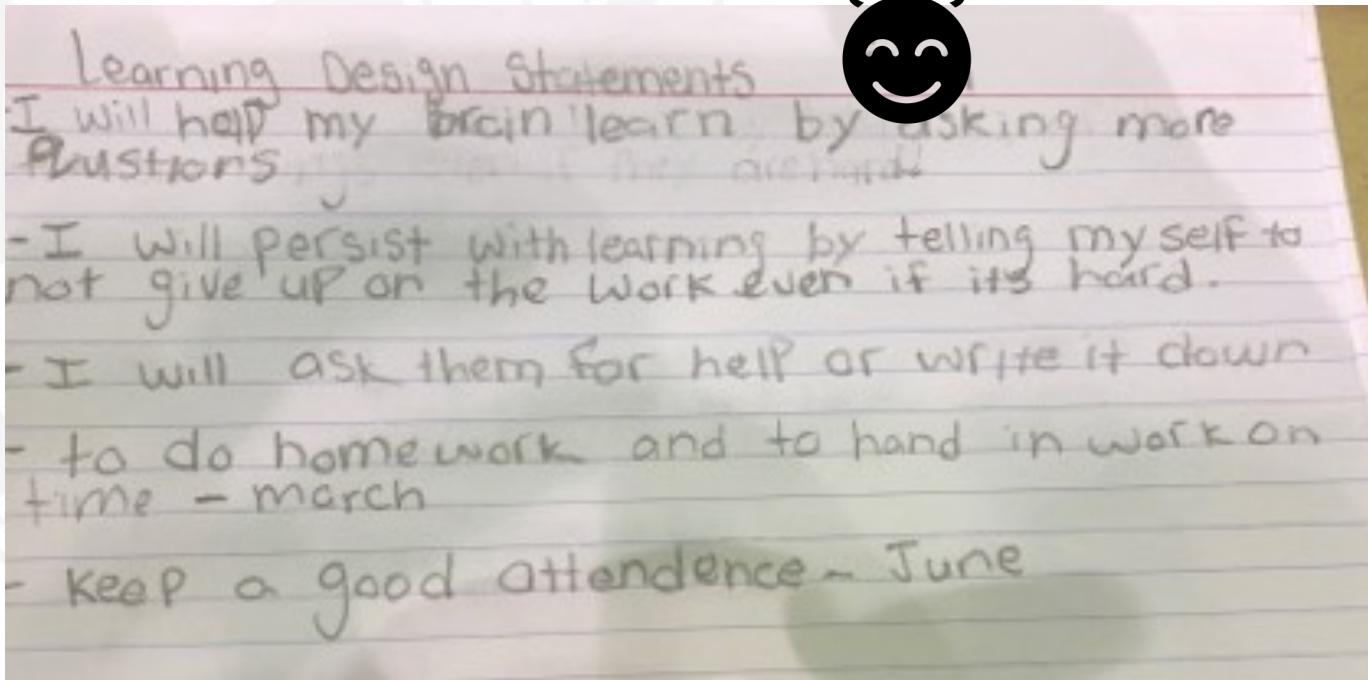 Learning Design Statements
-I will help my brain learn by asking more
Qustions
-I will persist with learning by telling my self to
not give up on the work even if its hard.
-I will ask them for help or write it down
- to do homework and to hand in work on
time - march
- keep a good attendence - June